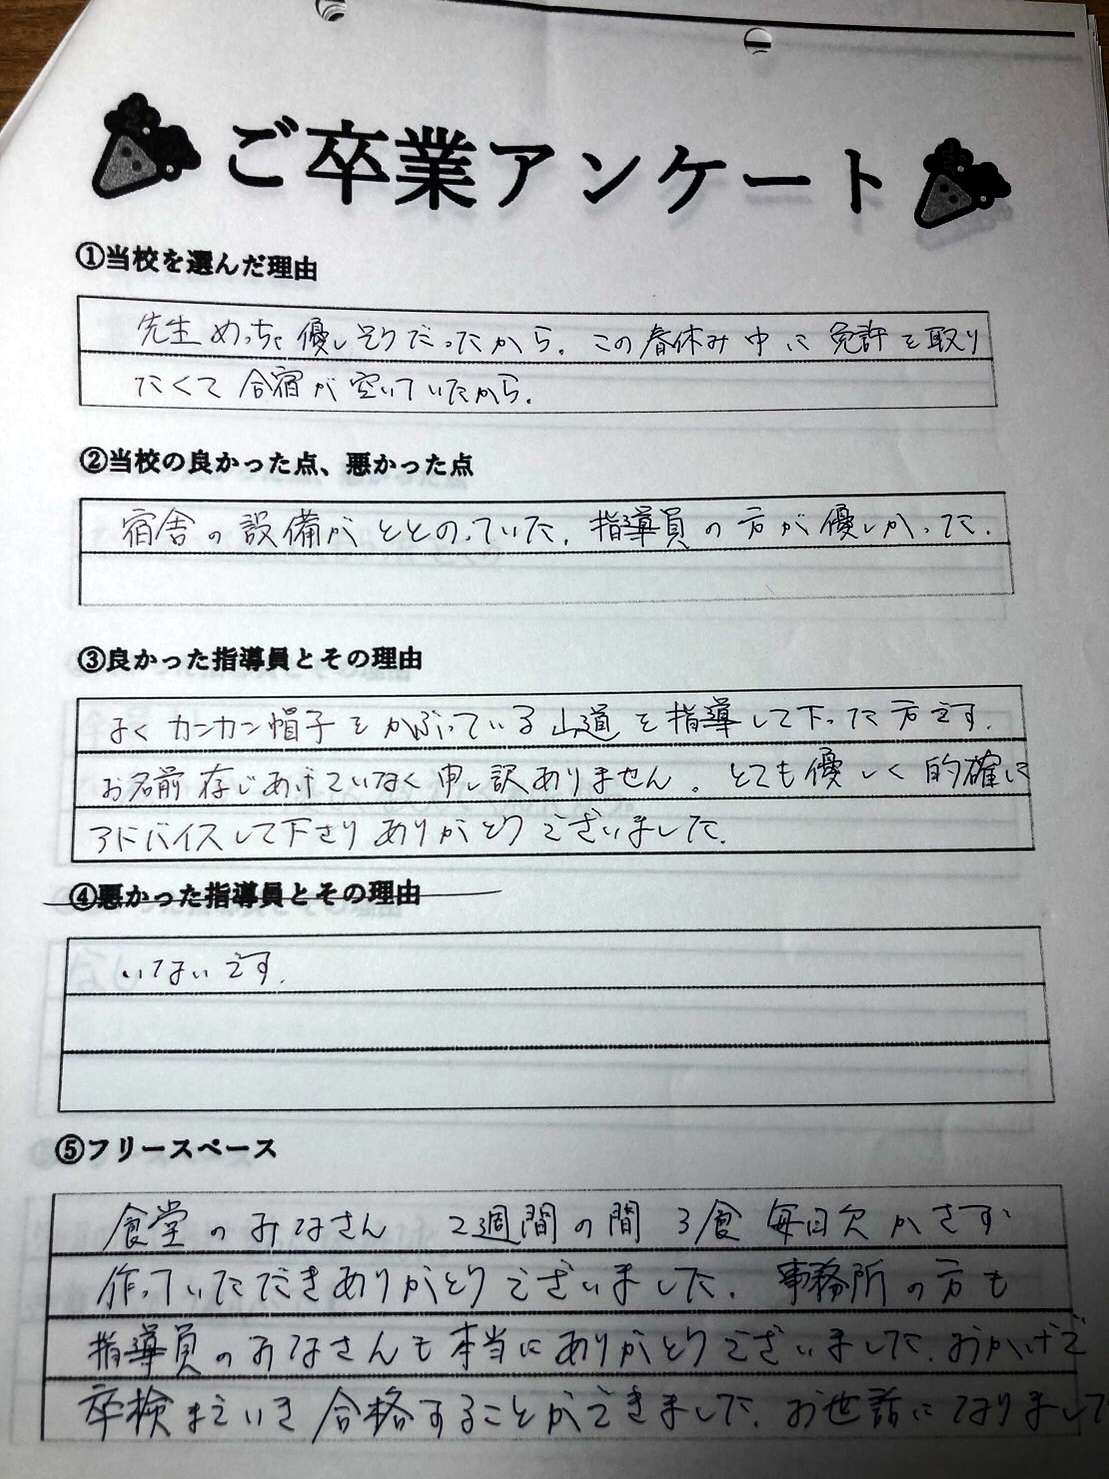 ご卒業アンケート
①当校を選んだ理由
先生めっちゃ優しそうだったから。この春休み中に免許を取り
たくて合宿が空いていたから。
②当校の良かった点、悪かった点
宿舎の設備がととのっていた。指導員の方が優しかった。
③良かった指導員とその理由
よくカンカン帽子をかぶっている山道を指導して下った方です。
お名前存じあげていなく申し訳ありません。とても優しく的確に
アドバイスして下さりありがとうございました。
④悪かった指導員とその理由
いないです。
⑤フリースペース
食堂のみなさん 2週間の間 3食 毎日欠かさず
作っていただきありがとうございました。事務所の方も
指導員のみなさんも本当にありがとうございました。おかげで
卒検まで合格することができました。お世話になりました